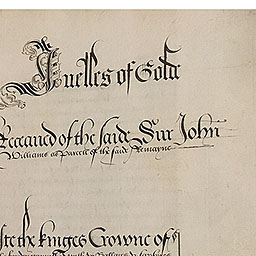 Iuelles of Gold
Receaued of the saide Sur John
Williams as parcell of the saide Remayne
the kinges Crowne of